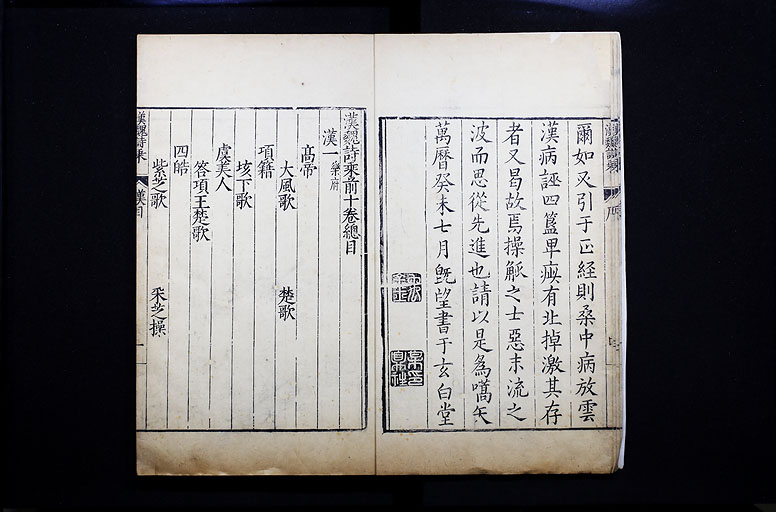 爾如又引于正經則桑中病放雲
漢病誣四簋畢瘼有北掉激其存
者又曷故焉操觚之士惡末流之
波而思從先進也請以是爲嚆矢
萬曆癸未七月旣望書于玄白堂
漢魏詩乘前十卷總目
漢一 樂府
高帝
大風歌 楚歌
項籍
垓下歌
虞美人
答項王楚歌
四皓
紫芝歌 采芝操
漢魏詩乘 漢目 一